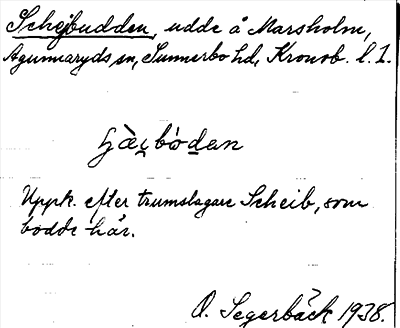 Schejbudden, udde å Marsholm,
Agunnaryds sn, Sunnerbo hd, Kronob. l. 1.
Uppk. efter trumslagare Scheib, som
bodde här.
O. Segerbäck 1938.